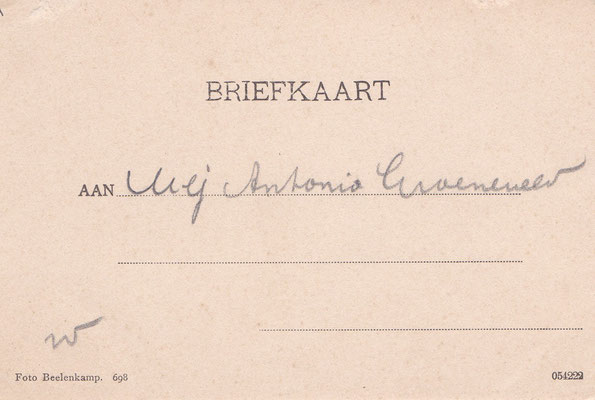 BRIEFKAART
AAN Mej Antonia Groeneveld
Foto Beelenkamp. 698